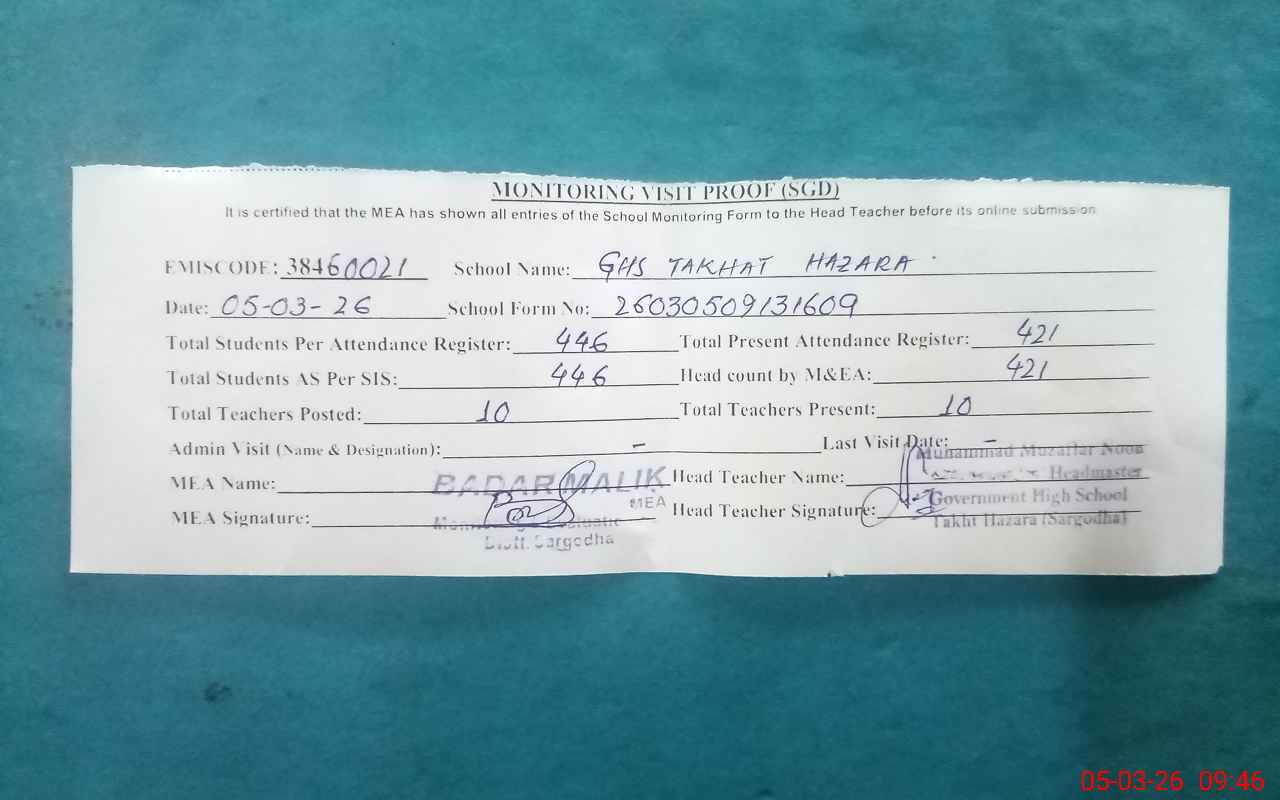 MONITORING VISIT PROOF (SGD)
It is certified that the MEA has shown all entries of the School Monitoring Form to the Head Teacher before its online submission
EMISCODE: 38460021 School Name: GHS TAKHAT HAZARA
Date: 05-03-26 School Form No: 26030509131609
Total Students Per Attendance Register: 446 Total Present Attendance Register: 421
Total Students AS Per SIS: 446 Head count by M&EA: 421
Total Teachers Posted: 10 Total Teachers Present: 10
Admin Visit (Name & Designation): - Last Visit Date: -
MEA Name: BADAR MALIK Head Teacher Name: Muhammad Muzaffar Noon
MEA Headmaster
MEA Signature: Head Teacher Signature: Government High School
Distt. Sargodha Takht Hazara (Sargodha)
05-03-26 09:46